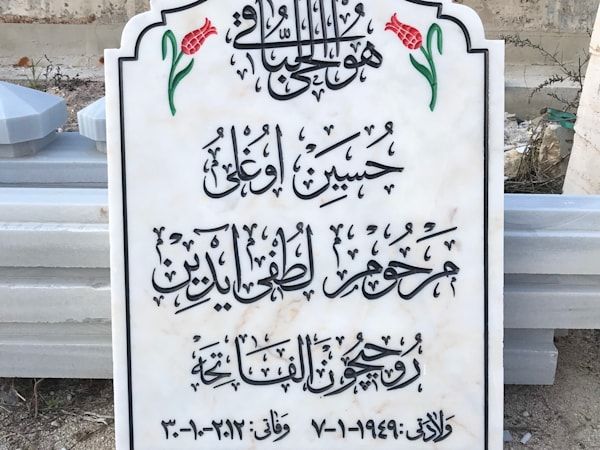 هُوَ الْحَيُّ الْبَاقِي
حُسَيِنْ اوُغْلُى
مَرْحُومْ لُطْفِى ايْدِينْ
رُوحِيچُونْ الْفَاتِحَه
وِلَادَتِى : ١٩٤٩-١-٧ وَفَاتِى : ٢٠١٢-١٠-٣٠